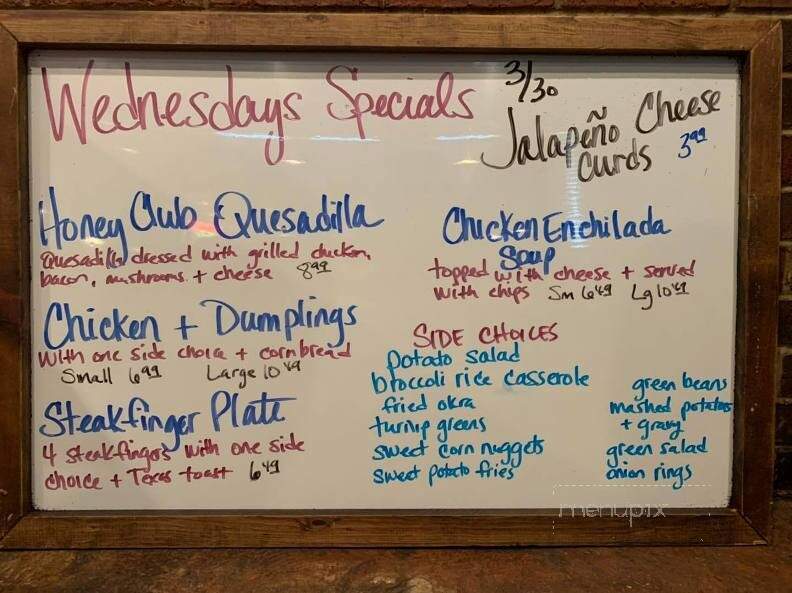 Wednesdays Specials
3/30
Jalapeño Cheese
Curds 3.99
Honey Club Quesadilla
Quesadilla dressed with grilled chicken,
bacon, mushrooms + cheese 8.99
Chicken + Dumplings
With one side choice + cornbread
Small 6.99 Large 10.49
Steakfinger Plate
4 steakfingers with one side
choice + Texas toast 6.49
Chicken Enchilada
Soup
topped with cheese + served
with chips Sm 6.49 Lg 10.49
SIDE CHOICES
potato salad
broccoli rice casserole
fried okra
turnip greens
sweet corn nuggets
sweet potato fries
green beans
mashed potatoes
+ gravy
green salad
onion rings
menupix